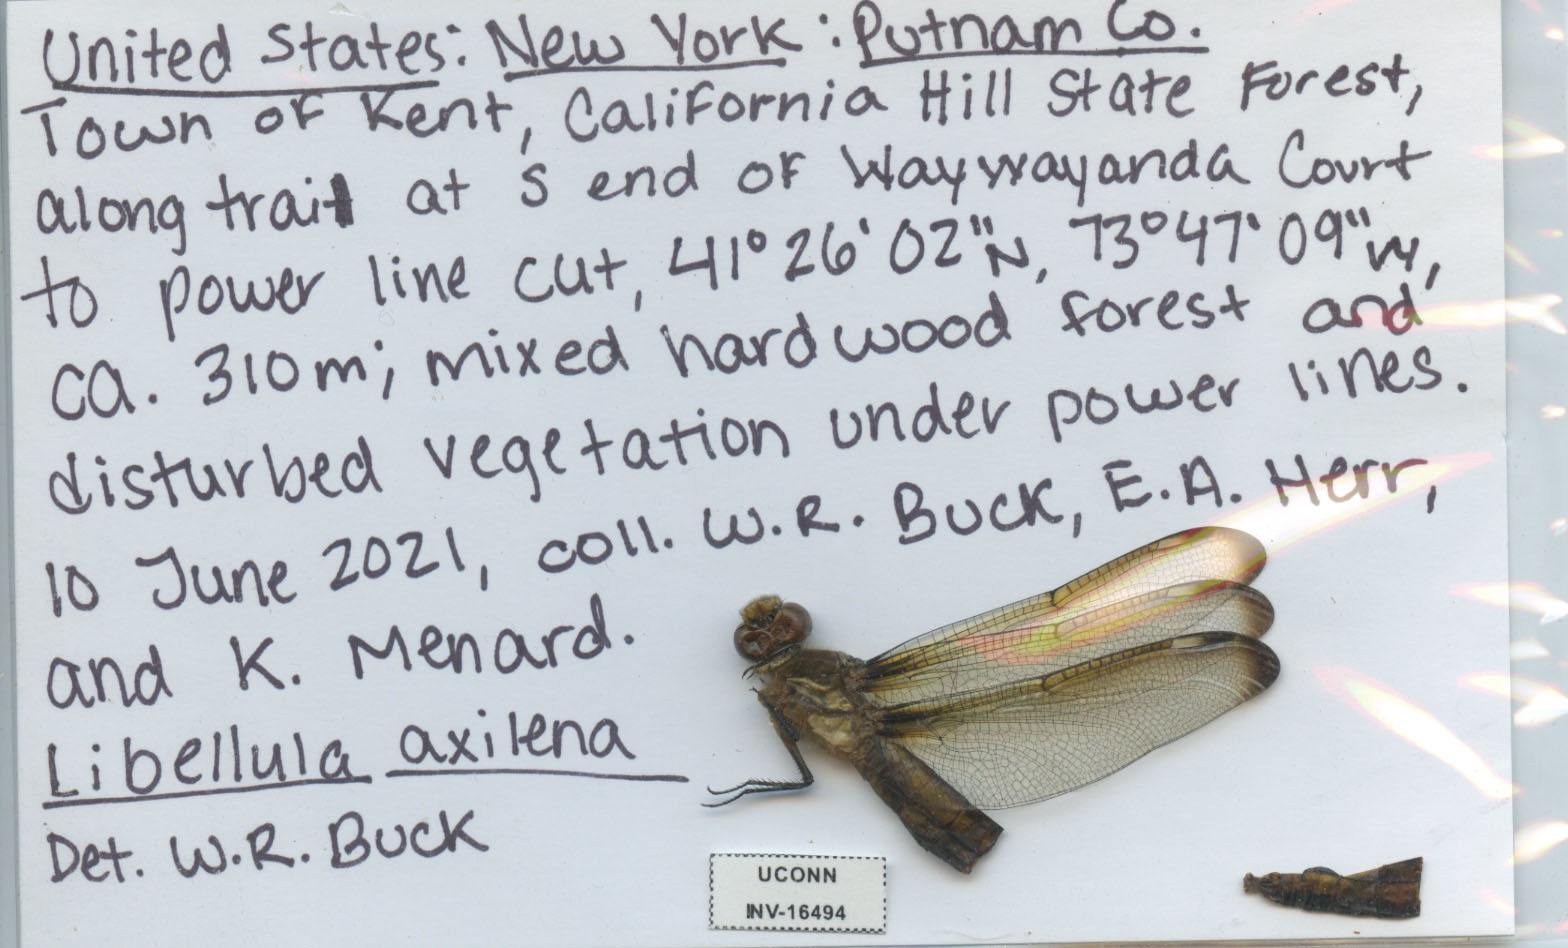 United States: New York: Putnam Co.
Town of Kent, California Hill State Forest,
along trail at S end of Waywayanda Court
to power line cut, 41° 26' 02" N, 73° 47' 09" W,
ca. 310m; mixed hardwood forest and
disturbed vegetation under power lines.
10 June 2021, coll. W.R. Buck, E.A. Herr,
and K. Menard.
Libellula axilena
Det. W.R. Buck
UCONN
INV-16494